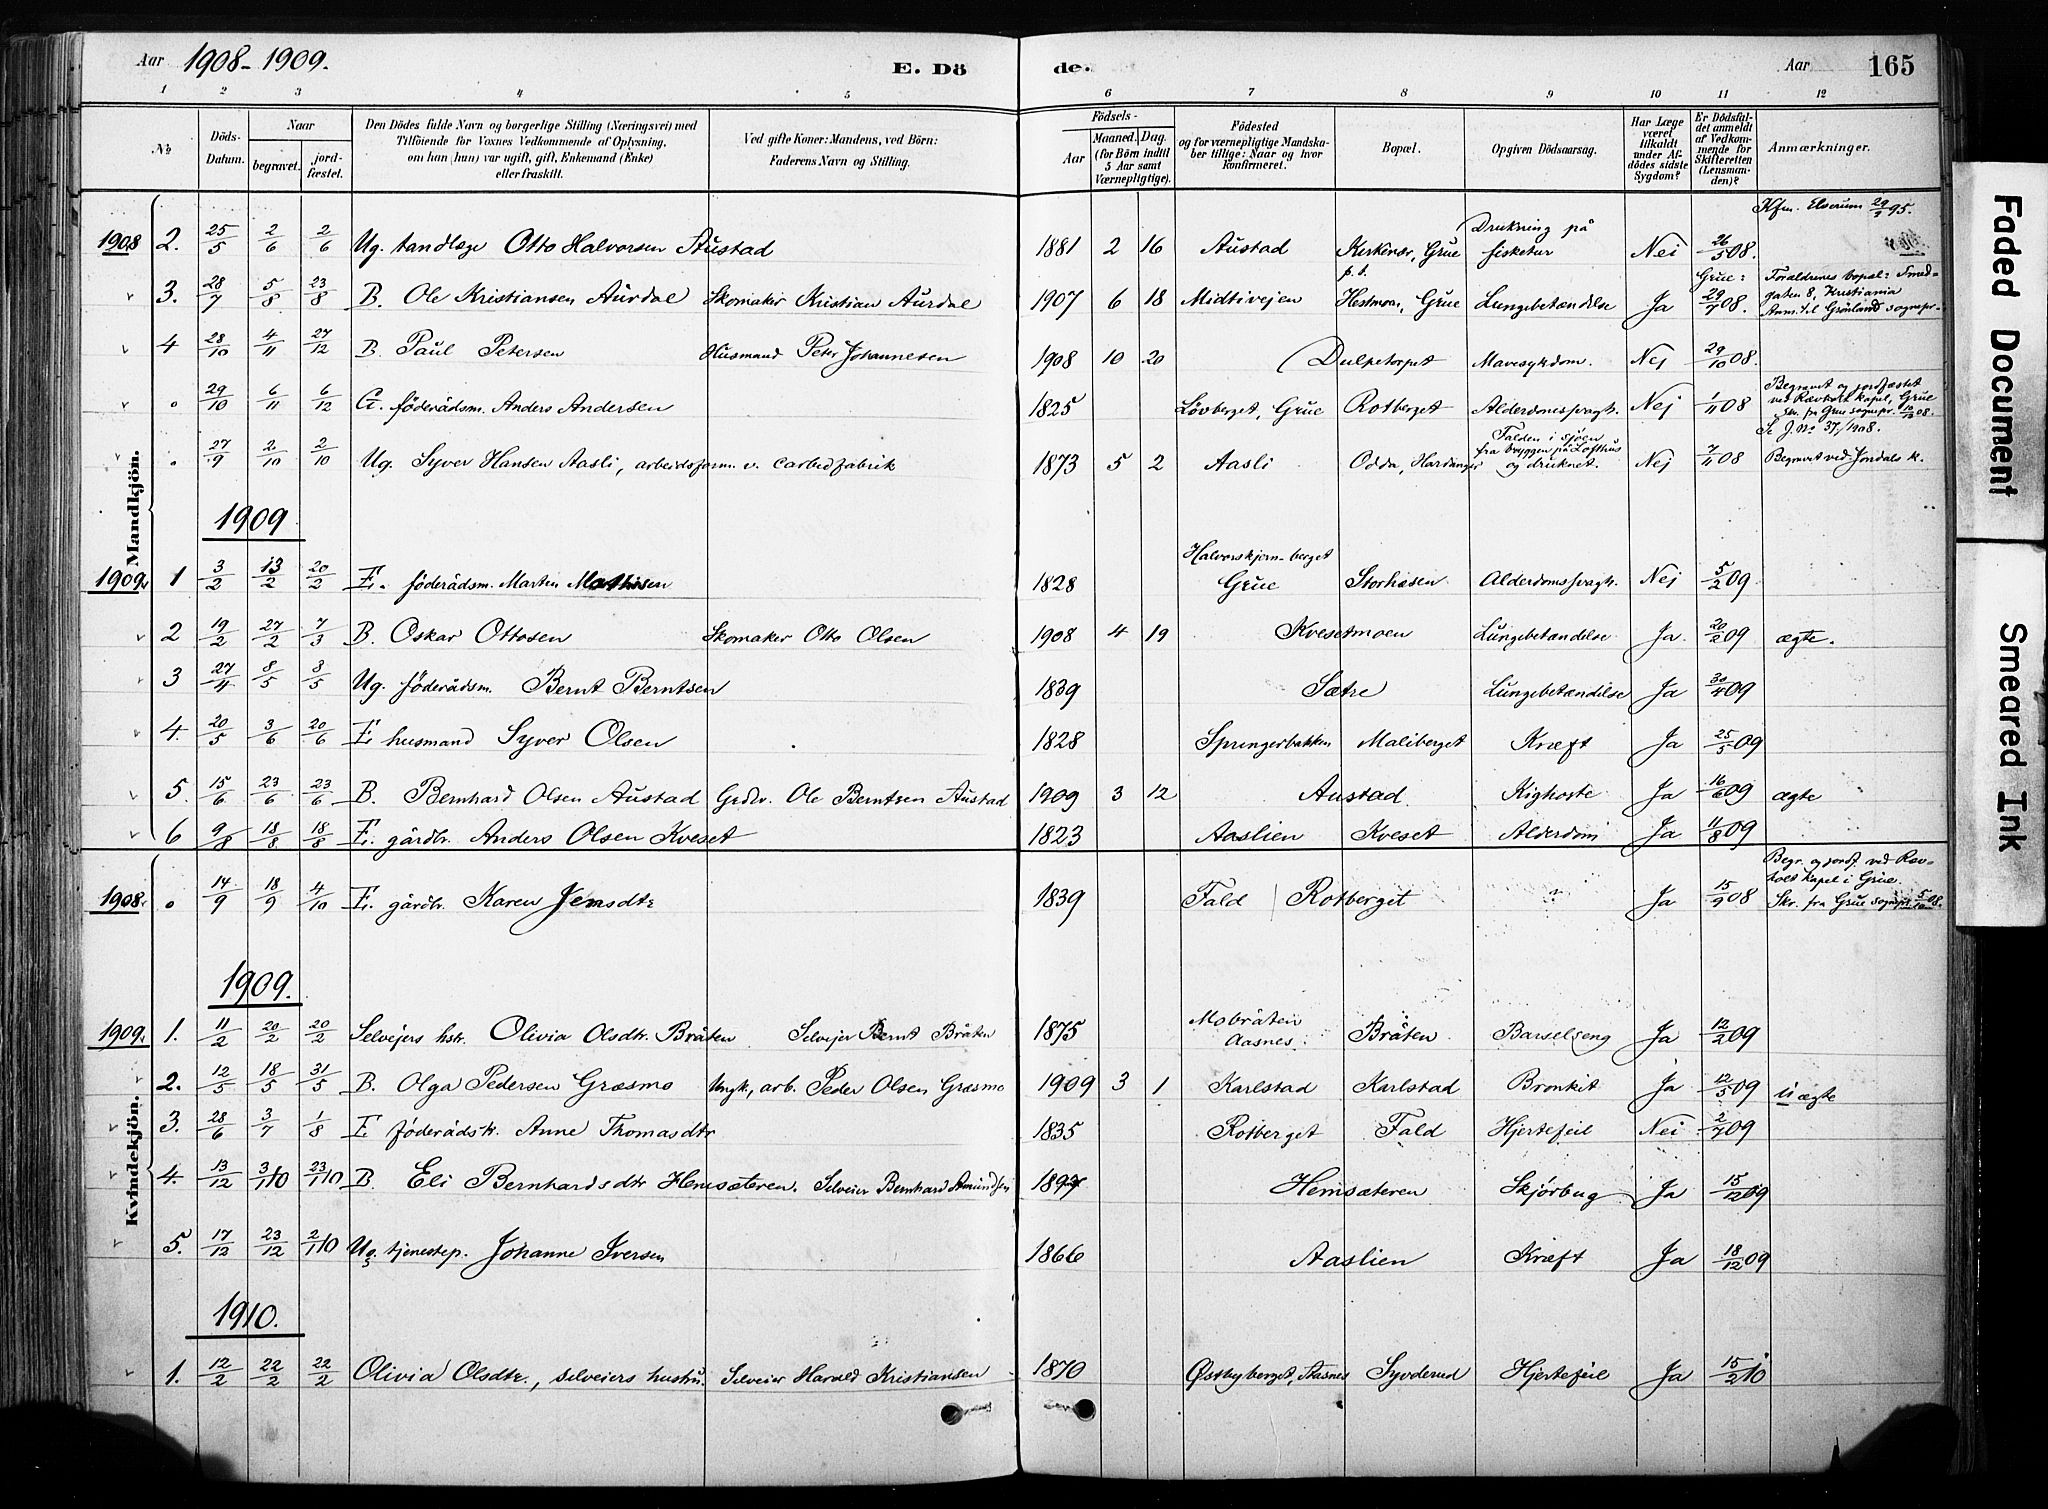 Aar 1908-1909. E. Dö de. Aar 165
1 2 3 4 5 6 7 8 9 10 11 12
№ Döds-Datum. Naar begravet. jord-fæstet. Den Dödes fulde Navn og borgerlige Stilling (Næringsvei) med Tilföiende for Voxnes Vedkommende af Oplysning, om han (hun) var ugift, gift, Enkemand (Enke) eller fraskilt. Ved gifte Koner: Mandens, ved Börn: Faderens Navn og Stilling. Födsels- Aar Maaned. Dag. (for Börn indtil 5 Aar samt Værnepligtige). Födested og for værnepligtige Mandskaber tillige: Naar og hvor konfirmeret. Bopæl. Opgiven Dödsaarsag. Har Læge været tilkaldt under Afdödes sidste Sygdom? Er Dödsfaldet anmeldt af Vedkommende for Skifteretten (Lensmanden)? Anmærkninger.
Mandkjön.
1908 2. 25/5 2/6 2/6 Ug. tandlæge Otto Halvorsen Austad 1881 2 16 Austad Kirkenær, Grue p.t. Drukning på fisketur Nei 26/5 08. Kfm. Elverum 29/9 95.
3. 28/7 5/8 23/8 B. Ole Kristiansen Aurdal Skomaker Kristian Aurdal 1907 6 18 Midtivejen Hestmoen, Grue Lungebetændelse Ja Grue: 29/7 08. Forældrenes bopæl: Smedgaten 8, Kristiania Anm. til Grønland sognepr.
4 28/10 4/11 27/12 B. Paul Petersen Husmand Peter Johannesen 1908 10 20 Dulpetorpet Mavesykdom. Nej 29/10 08.
0 29/10 6/11 6/12 G. föderådsm. Anders Andersen 1825 Lövberget, Grue Rotberget Alderdomssvagh. Nej 1/11 08 Begravet og jordfæstet ved Rævholt kapel, Grue Skr. fra Grue sognepr. 12/12 08. Se J. No 37/1908.
0 27/9 2/10 2/10 Ug. Syver Hansen Aasli, arbeidsform. v. carbidfabrik 1873 5 2 Aasli Odda, Hardanger Falden i sjöen fra bryggen på Lofthus og druknet. Nej 7/11 08 Begravet ved Jondals k.
1909
1909. 1 3/2 13/2 20/2 E. föderådsm. Martin Mathisen 1828 Halvorskjern-berget Grue Storhåsen Alderdomssvagh. Nej 5/2 09
2 19/2 27/2 7/3 B. Oskar Ottosen Skomaker Otto Olsen 1908 4 19 Kvesetmoen Lungebetændelse Ja. 20/2 09 ægte.
3 27/4 8/5 8/5 Ug. föderådsm. Bernt Berntsen 1839 Sætre Lungebetændelse Ja 30/4 09
4. 20/5 3/6 20/6 E. husmand Syver Olsen 1828 Springerbakken Maliberget Kræft Ja 25/5 09
5. 15/6 23/6 23/6 B. Bernhard Olsen Austad Grdbr. Ole Berntsen Austad 1909 3 12 Austad Kighoste Ja 16/6 09 ægte
6 9/8 18/8 18/8 E. gårdbr. Anders Olsen Kveset 1823 Aaslien Kveset Alderdom Ja 11/8 09
Kvindekjön.
1908. 0 14/9 18/9 4/10 E. gårdbr. Karen Jensdtr 1839 Fald Rotberget ? Ja 15/9 08 Begr. og jordf. ved Rævholt kapel i Grue. Skr. fra Grue sognepr. 5/10 08.
1909.
1909. 1. 11/2 20/2 20/2 Selvejers hstr. Olivia Olsdtr. Bråten Selvejer Bernt Bråten 1875 Mobråten Aasnes. Bråten Barselseng Ja 12/2 09
2. 12/5 18/5 31/5 B. Olga Pedersen Græsmo Ungk., arb. Peder Olsen Græsmo 1909 3 1 Karlstad Karlstad Bronkit Ja 12/5 09 uægte
3. 28/6 3/7 1/8 E. föderådsk. Anne Thomasdtr 1835 Rotberget Fald Hjertefeil Nei 2/7 09
4. 13/12 3/1 10 23/1 10 B. Eli Bernhardsdtr Hemsæteren. Selveier Bernhard Amundsen 1897 Hemsæteren Skjørbug Ja 15/12 09
5. 17/12 23/12 2/1 10 Ug. tjenestep. Johanne Iversen 1866 Aaslien Kræft Ja 18/12 09
1910.
1. 12/2 22/2 22/2 Olivia Olsdtr., selveiers hustru. Selveier Harald Kristiansen 1870 Østbyberget, Aasnes Syvderud Hjertefeil Ja 15/2 10
Faded Document
Smeared Ink